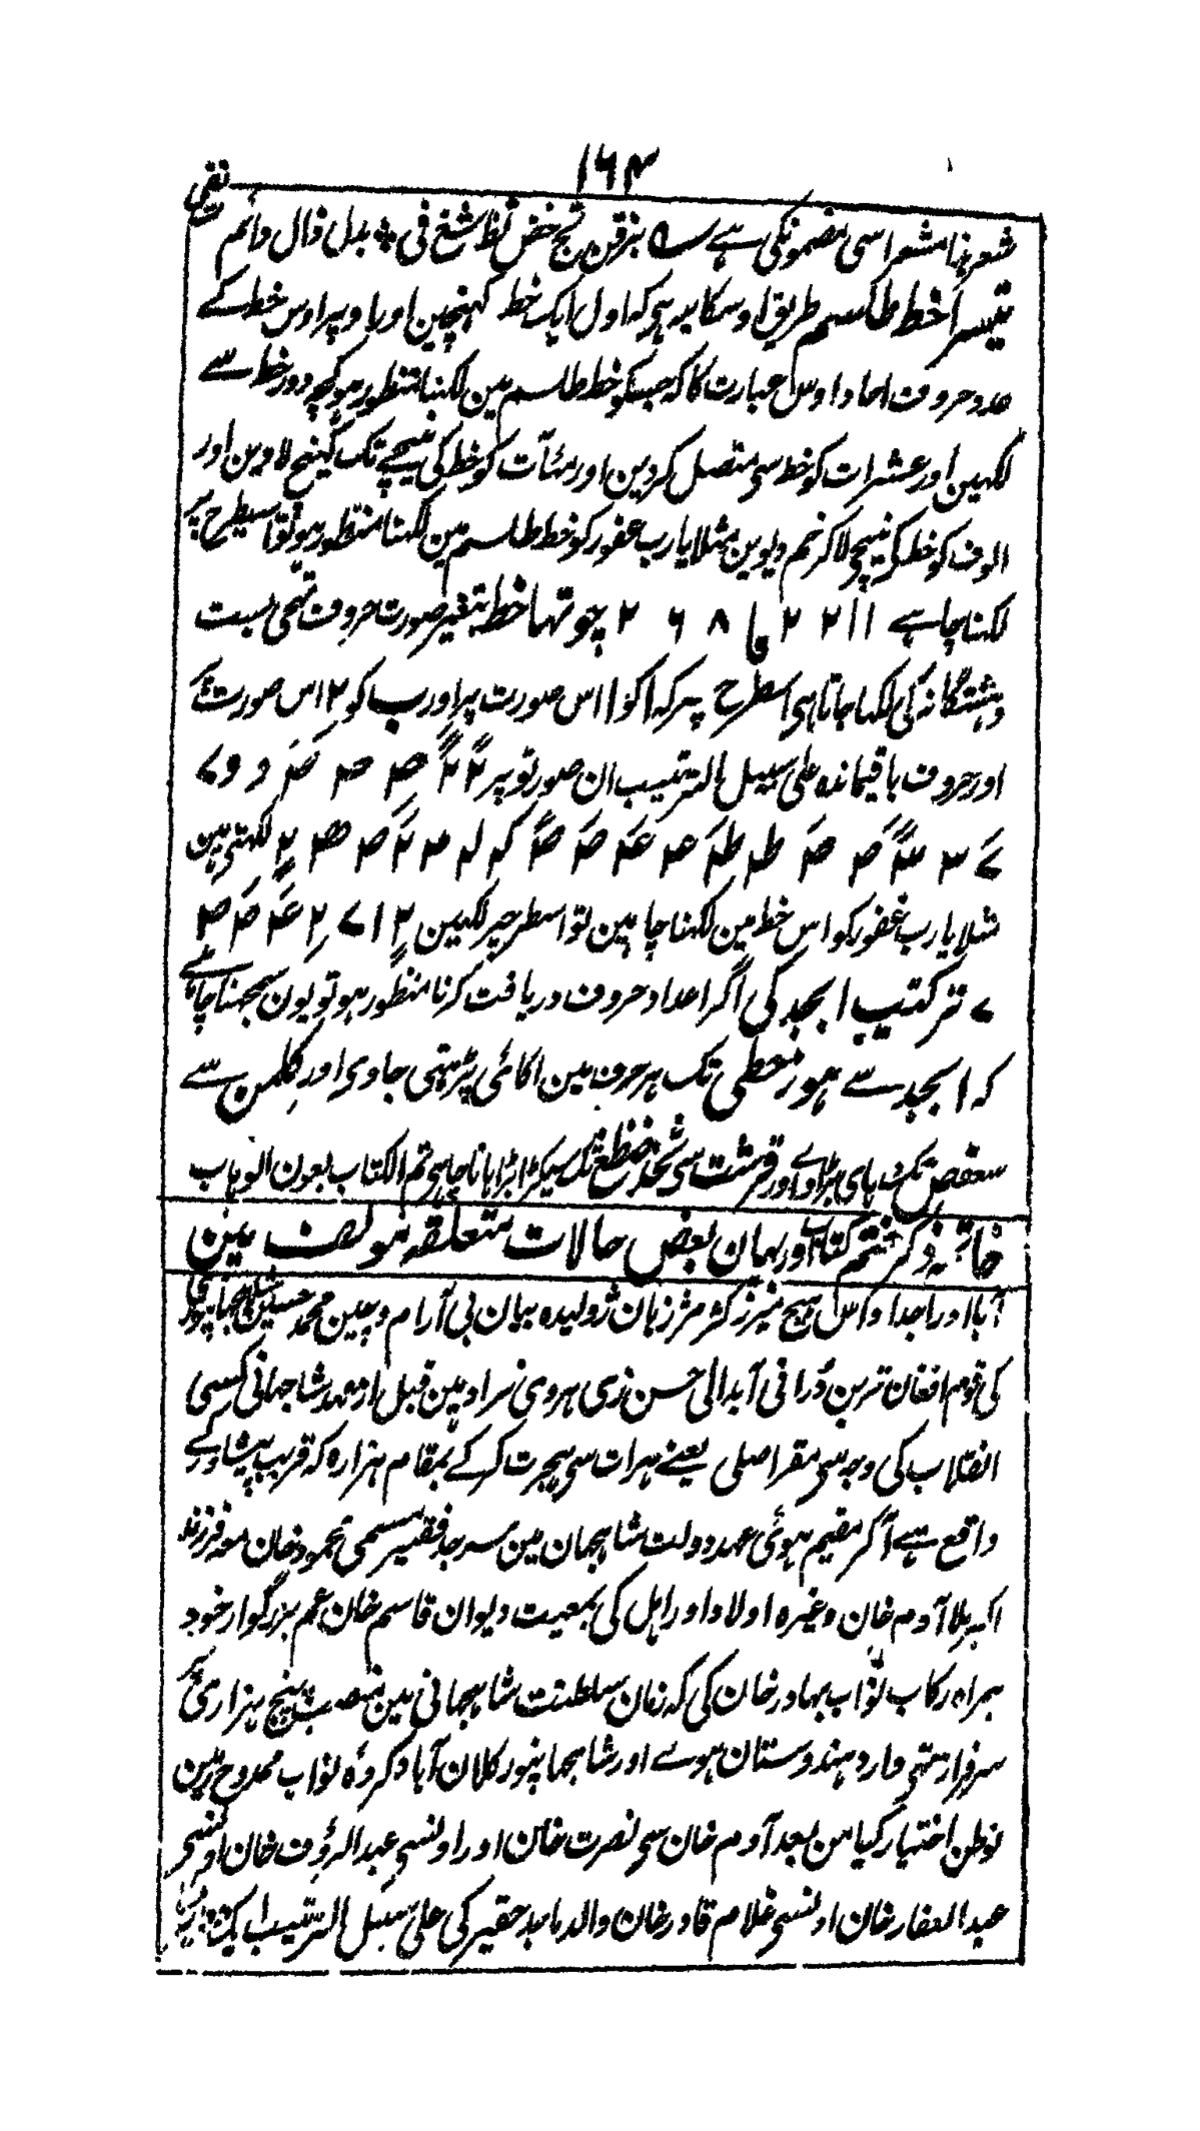 ۱۶۴
شعر ہذا مشعر اسی مضمونکی ہے بزقن تج خض ثظ شغ فی بدل ذال دائم
تیسرا خط طلسم طریق اوسکا یہ ہی کہ اول ایک خط کہنچین اور اوپر اوس خط کے
عدد حروف احاد اوس عبارت کا کہ جسکو خط طلسم مین لکہنا منظور ہو کچہ دور خط سے
لکہین اور عشرات کو خط سی متصل کر دین اور مئآت کو خط کی نیچے تک کہینچ لاوین اور
الوف کو خط کی نیچی لاکر خم دیوین مثلا یا رب غفور کو خط طلسم مین لکہنا منظور ہو تو اسیطرح پر
لکہنا چاہے ۱۱ ۲ ۲ ۸ ۶ ۲ چوتہا خط بتغیر صورت حروف تہجی بست
وہشتگانہ کی لکہا جاتا ہی اسطرح پر کہ ا کو ا اس صورت پر اور ب کو ۲ اس صورت پر
اور حروف باقیماندہ علی سبیل الترتیب ان صورتو پر
لکہتی ہین
مثلا یا رب غفور کو اس خط مین لکہنا چاہین تو اسطرح پر لکہین
ترکتیب ابجد کی اگر اعداد حروف دریافت کرنا منظور ہو تو یون سمجہنا چاہئے
کہ ابجد سے ہوز حطی تک ہر حرف مین اکائی بڑہتی جاوی اور کلمن سے
سعفص تک دہای بڑہاوے اور قرشت سی ثخذ ضظغ تک سیکڑا بڑہانا چاہی تم الکتاب بعون الوہاب
خاتمہ ذکر ختم کتاب اور بیان بعض حالات متعلقہ مولف مین
آبا اور اجداد اس ہیچ میرز کژمژ زبان ژولیدہ بیان بی آرام و چین محمد حسین شاہجہانپوری
کی قوم افغان ترین درانی آبدالی حسن زی ہروی نژاد ہین قبل از عہد شاہجہانی کسی
انقلاب کی وجہ سی مقر اصلی یعنے ہرات سی ہجرت کر کے بمقام ہزارہ کہ قریب پیشاور کے
واقع ہے آکر مقیم ہوئی عہد دولت شاہجہان مین سرجد فقیر مسمی محمود خان معہ فرزند
اکبر ملا آدم خان وغیرہ اولاد اور اہل کی بمعیت دیوان قاسم خان عم بزرگوار خود
ہمراہ رکاب نواب بہادر خان کی کہ زمان سلطنت شاہجہانی مین منصب پنج ہزاری پر
سرفراز تہی وارد ہندوستان ہوے اور شاہجہانپور کلان آباد کردہ نواب ممدوح مین
توطن اختیار کیا من بعد آدم خان سی نصرت خان اور اونسی عبد الرؤف خان اونسی
عبد الغفار خان اونسی غلام قادر خان والد ماجد حقیر کی علی سبیل الترتیب ایک